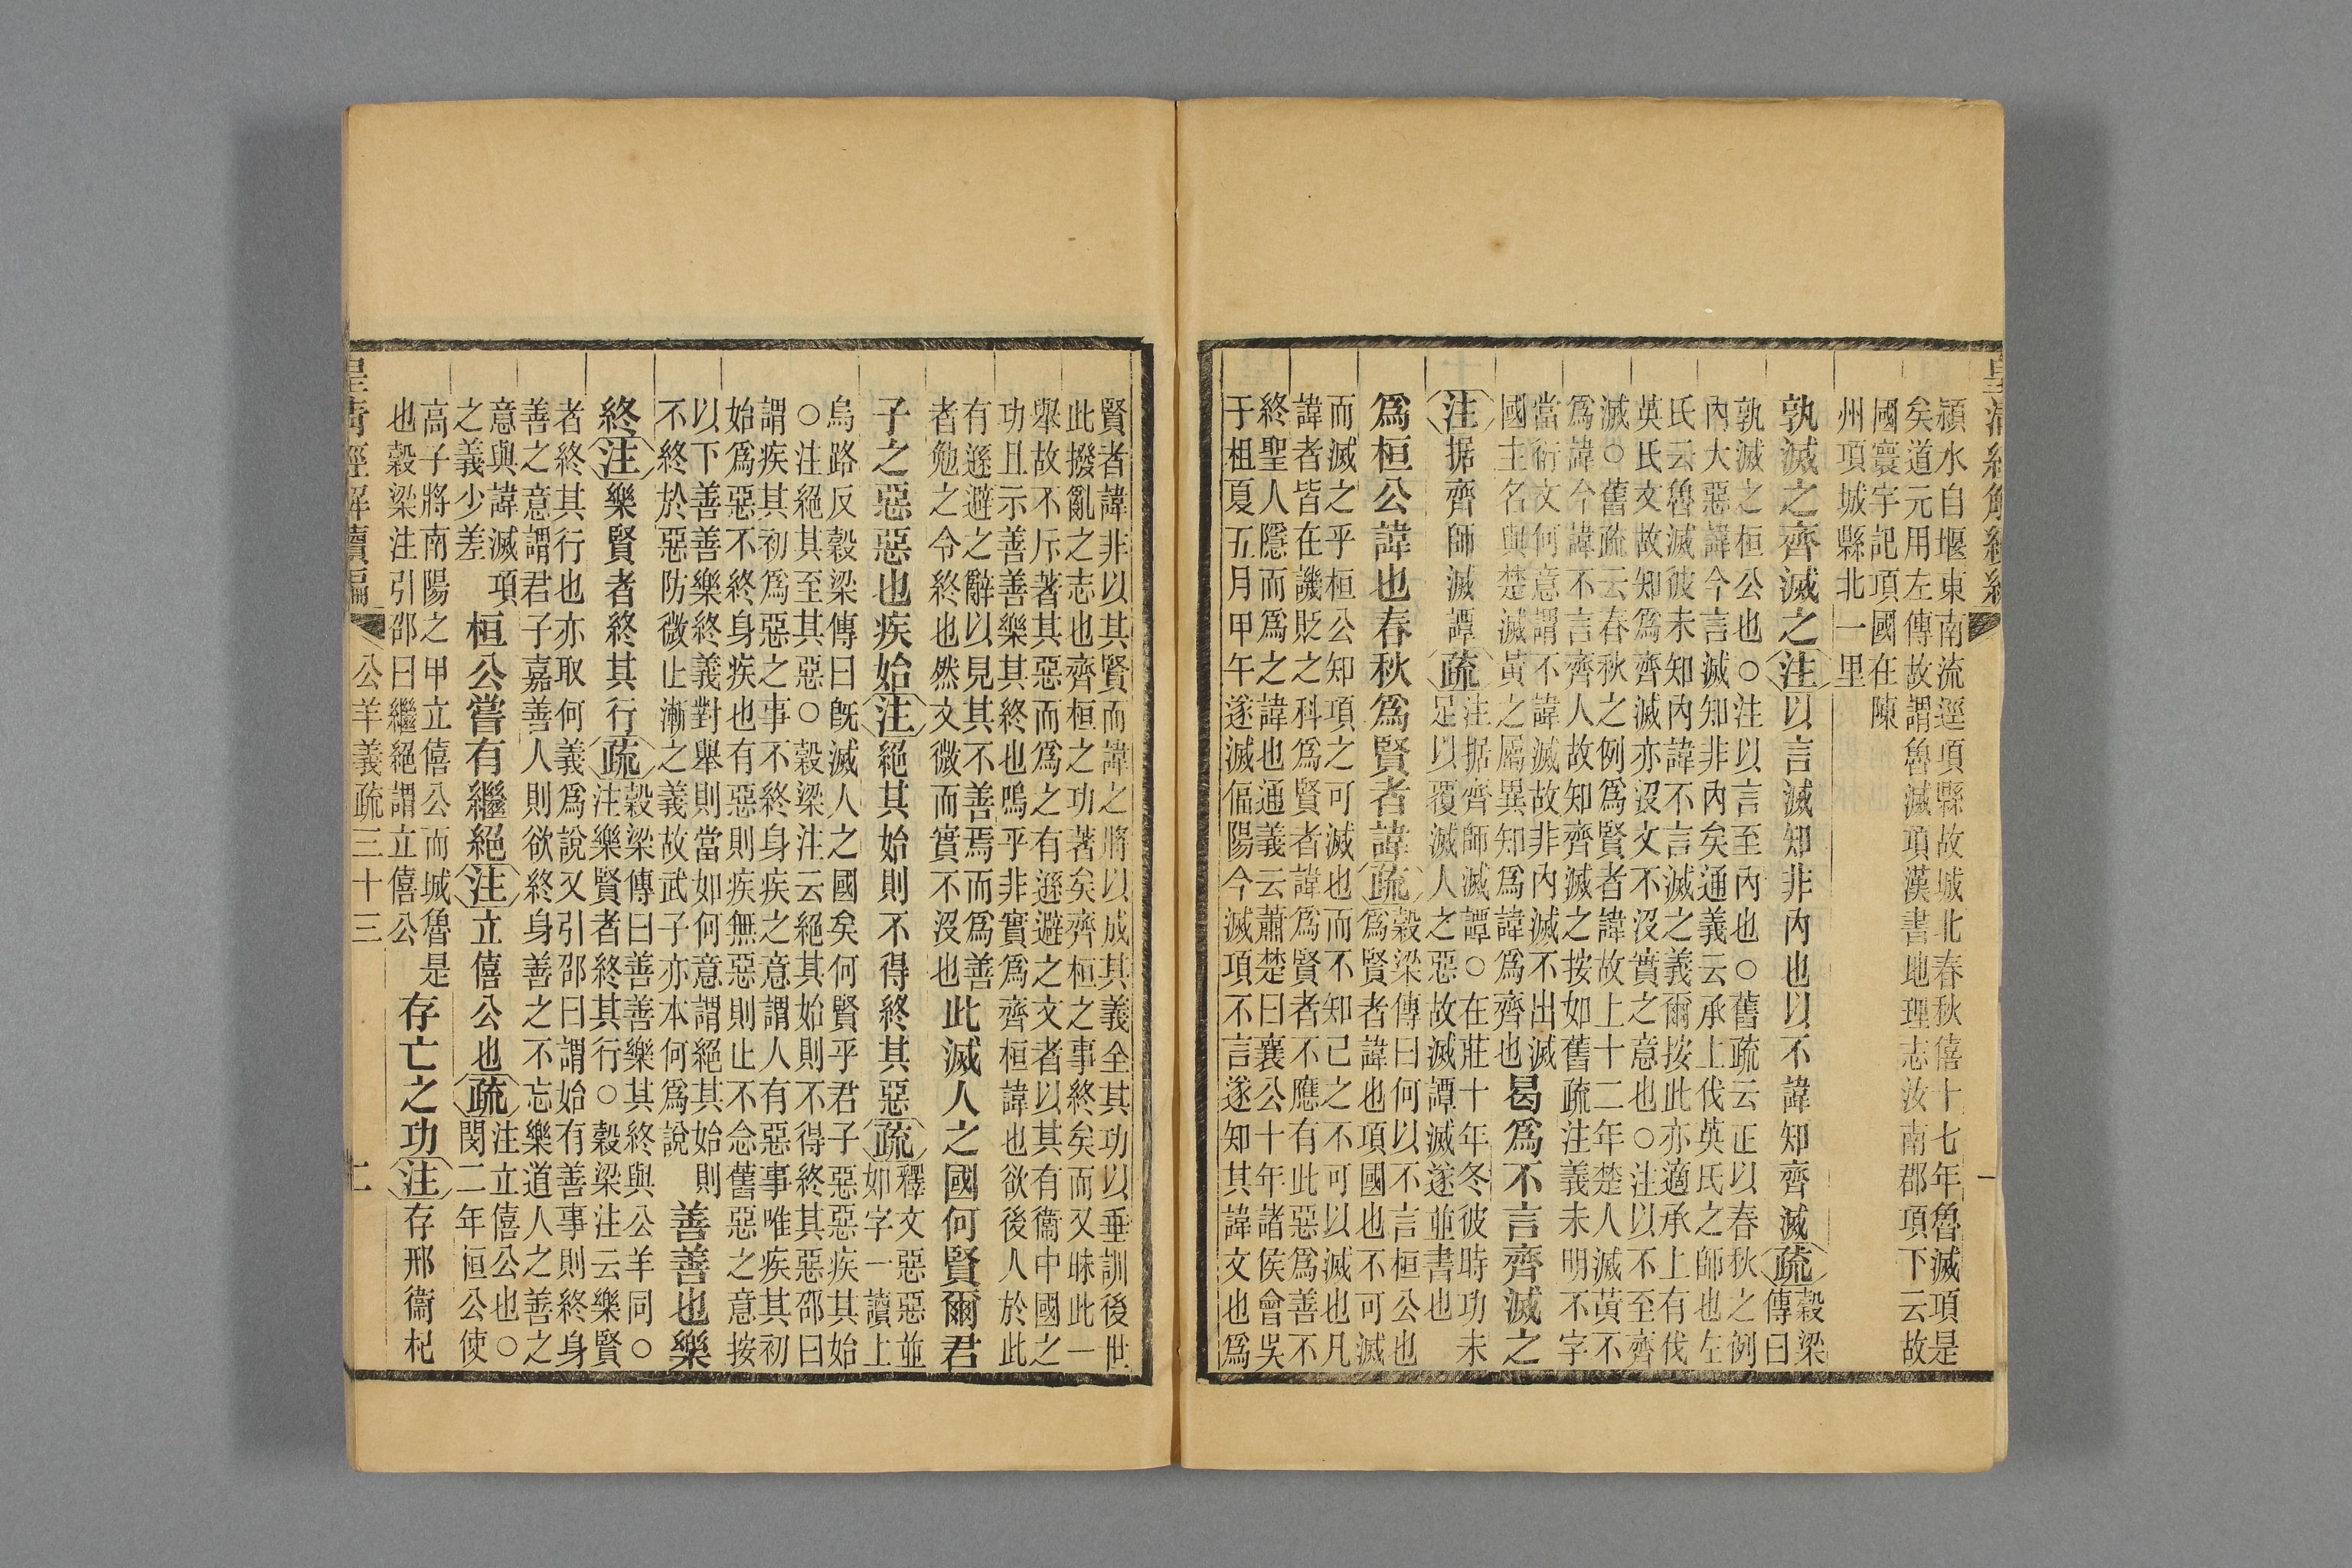 皇清經解續編 一
潁水自堰東南流逕項縣故城北春秋僖十七年魯滅項是
矣道元用左傳故謂魯滅項漢書地理志汝南郡項下云故
國寰宇記項國在陳
州項城縣北一里
孰滅之齊滅之注以言滅知非內也以不諱知齊滅疏
穀梁
傳曰
孰滅之桓公也○注以言至內也○舊疏云正以春秋之例
內大惡諱今言滅知非內矣通義云承上伐英氏之師也左
氏云魯滅彼未知內諱不言滅之義爾按此亦適承上有伐
英氏文故知爲齊滅亦沒文不沒實之意也○注以不至齊
滅○舊疏云春秋之例爲賢者諱故上十二年楚人滅黃不
爲諱今諱不言齊人故知齊滅之按如舊疏注義未明不字
當衍文何意謂不諱滅故非內滅不出滅
國主名與楚滅黃之屬異知爲諱爲齊也
曷爲不言齊滅之
注据齊師滅譚疏
注据齊師滅譚○在莊十年冬彼時功未
足以覆滅人之惡故滅譚滅遂並書也
爲桓公諱也春秋爲賢者諱疏
穀梁傳曰何以不言桓公也
爲賢者諱也項國也不可滅
而滅之乎桓公知項之可滅也而不知己之不可以滅也凡
諱者皆在譏貶之科爲賢者諱爲賢者不應有此惡爲善不
終聖人隱而爲之諱也通義云蕭楚曰襄公十年諸侯會吳
于柤夏五月甲午遂滅偪陽今滅項不言遂知其諱文也爲
賢者諱非以其賢而諱之將以成其義全其功以垂訓後世
此撥亂之志也齊桓之功著矣齊桓之事終矣而又昧此一
舉故不斥著其惡而爲之有遜避之文者以其有衞中國之
功且示善善樂其終也嗚乎非實爲齊桓諱也欲後人於此
有遜避之辭以見其不善焉而爲善
者勉之令終也然文微而實不沒也
此滅人之國何賢爾君
子之惡惡也疾始注絕其始則不得終其惡疏
釋文惡惡並
如字一讀上
烏路反穀梁傳曰旣滅人之國矣何賢乎君子惡惡疾其始
○注絕其至其惡○穀梁注云絕其始則不得終其惡邵曰
謂疾其初爲惡之事不終身疾之意謂人有惡事唯疾其初
始爲惡不終身疾也有惡則疾無惡則止不念舊惡之意按
以下善善樂終義對舉則當如何意謂絕其始則
不終於惡防微止漸之義故武子亦本何爲說
善善也樂
終注樂賢者終其行疏
穀梁傳曰善善樂其終與公羊同○
注樂賢者終其行○穀梁注云樂賢
者終其行也亦取何義爲說又引邵曰謂始有善事則終身
善之意謂君子嘉善人則欲終身善之不忘樂道人之善之
意與諱滅項
之義少差
桓公嘗有繼絕注立僖公也疏
注立僖公也○
閔二年桓公使
高子將南陽之甲立僖公而城魯是
也穀梁注引邵曰繼絕謂立僖公
存亡之功注存邢衞杞
皇清經解續編 公羊義疏三十三 二